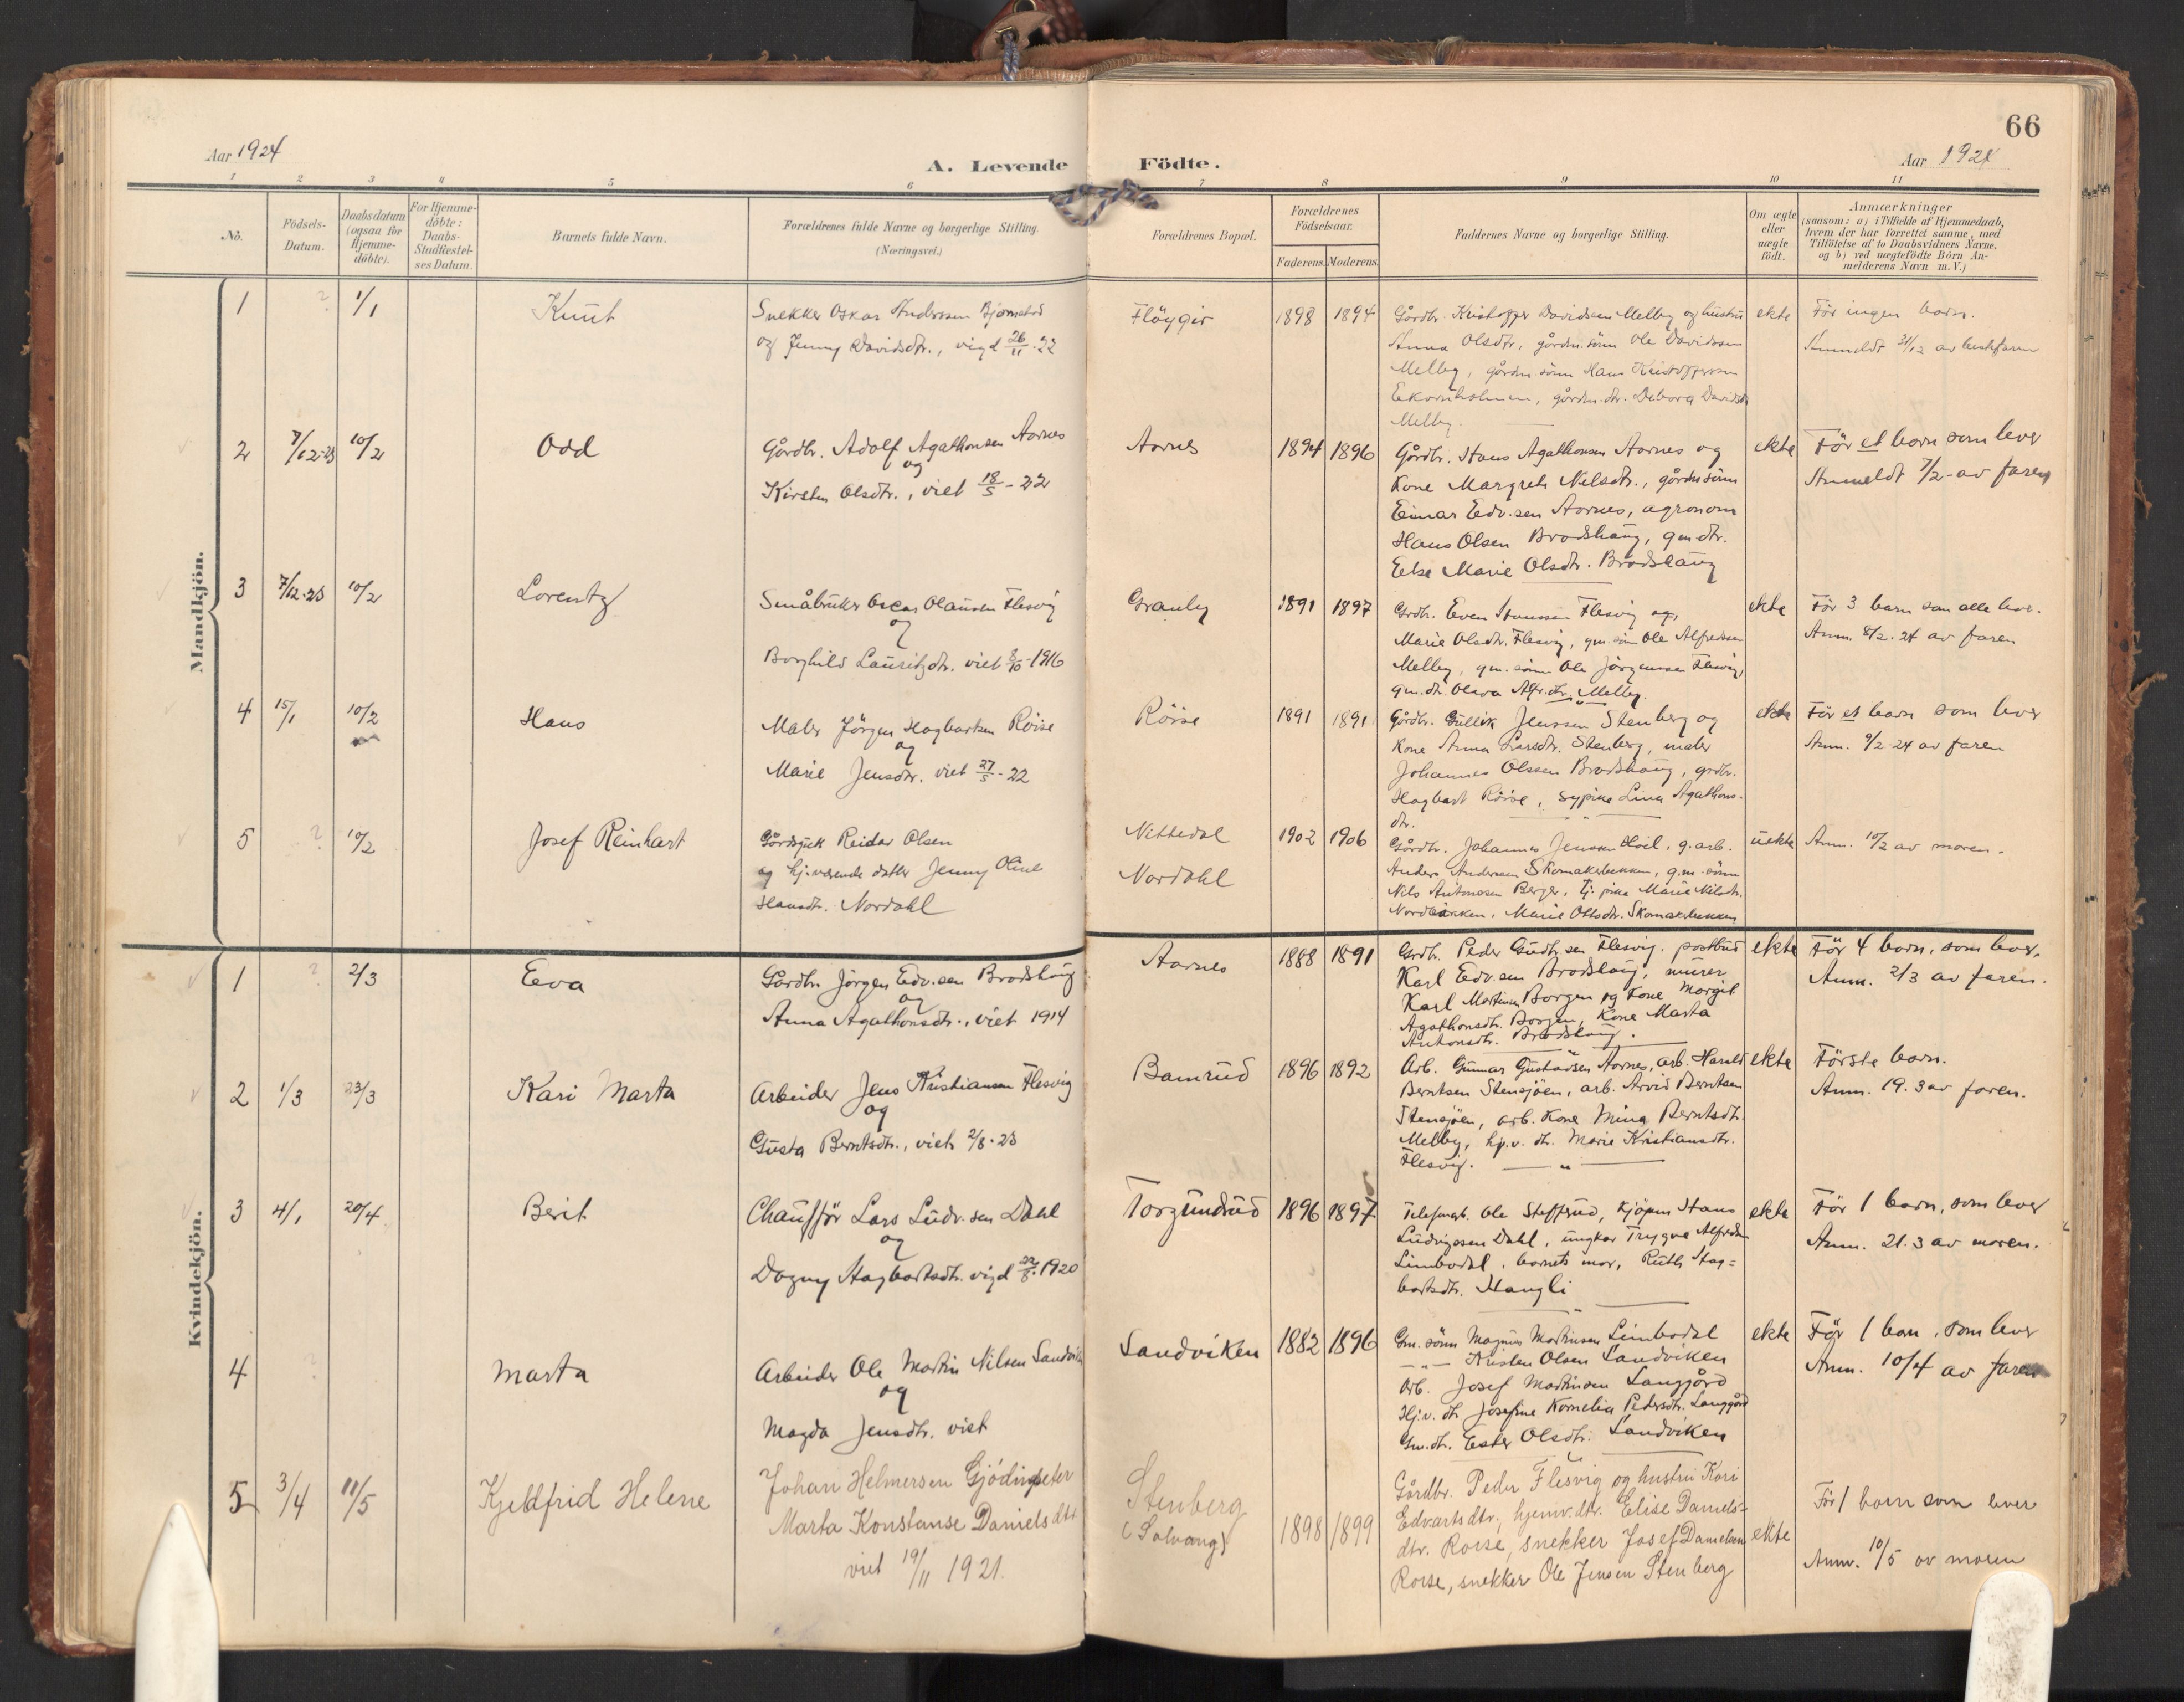 66
Aar 1924
A. Levende Födte.
Aar 1924
1 2 3 4 5 6 7 8 9 10 11
No.
Födsels-
Datum.
Daabsdatum
(ogsaa for
Hjemme-
döbte).
For Hjemme-
döbte:
Daabs-
Stadfæstel-
ses Datum.
Barnets fulde Navn.
Forældrenes fulde Navne og borgerlige Stilling.
(Næringsvei.)
Forældrenes Bopæl.
Forældrenes
Födselsaar.
Faderens. Moderens.
Faddernes Navne og borgerlige Stilling.
Om ægte
eller
uægte
födt.
Anmærkninger
(saasom: a) i Tilfælde af Hjemmedaab,
hvem der har forrettet samme, med
Tilföielse af to Daabsvidners Navne.
og b) ved uægtefödte Börn An-
melderens Navn m. V.)
Mandkjön.
1 ? 1/1 Knut
Snekker Oskar Anderssen Bjørnstad
og Jenny Davidsdtr., vigd 26/11-22
Fløygir 1898 1894
Gårdbr. Kristoffer Davidsen Melby og hustru
Anna Olsdtr., gårdm. sönn Ole Davidssen
Melby, gårdm. sönn Hans Kristoffersen
Eekornholmen, gårdm. dtr. Debora Davidsdtr.
Melby.
ekte
Før ingen barn.
Anmeldt 31/12 av bestefaren
2 7/12-23 10/2 Odd
Gårdbr. Adolf Agathonsen Aarnes
og
Kirsten Olsdtr., viet 18/5-22
Aarnes 1894 1896
Gårdbr. Hans Agathonsen Aarnes og
Kone Margrete Nilsdtr., gårdm sönn
Einar Edv.sen Aarnes, agronom
Hans Olsen Brodshaug, gm. dtr.
Else Marie Olsdtr. Brodshaug
ekte
Før et barn som lever
Anmeldt 7/2- av faren
3 7/12-23 10/2 Lorentz
Småbruker Oscar Olaussen Flesvig
og
Borghild Lauritzdtr. viet 8/10-1916
Granly 1891 1897
Grdbr. Even Hanssen Flesvig og
Marie Olsdtr. Flesvig, gm. sön Ole Alfredsen
Melby, gm. sönn Ole Jörgensen Flesvig,
gm. dtr. Olava Alfr.dtr. Melby.
ekte
Før 3 barn som alle lever.
Anm. 8/2-24 av faren
4 15/1 10/2 Hans
Maler Jörgen Hagbartsen Röise
og
Marie Jensdtr. viet 27/5-22
Röise 1891 1891
Gårdbr. Gullik Jenssen Stenberg og
Kone Anna Larsdtr. Stenberg, maler
Johannes Olssen Brodshaug, grdbr.
Hagbart Röise, sypike Lina Agathons-
dtr.
ekte
Før et barn som lever
Anm. 9/2-24 av faren
5 ? 10/2 Josef Reinhart
Gårdsgut Reidar Olsen
og hj.værende datter Jenny Oline
Hansdtr. Nordahl
Nittedal
Nordahl
1902 1906
Gårdbr. Johannes Jenssen Hoel, g.arb.
Anders Andersen Skomakerbekken, g.m. sönn
Nils Antonsen Berger, tj. pike Marie Nilsdtr.
Nordbanken, Marie Ottsdtr. Skomakerbekken
uekte
Anm. 10/2 av moren.
Kvindekjön.
1 ? 2/3 Eva
Gårdbr. Jörgen Edv.sen Brodshaug
og
Anna Agathonsdtr., viet 1914
Aarnes 1888 1891
Grdbr. Peder Gudbr.sen Flesvig, postbud
Karl Edv.sen Brodshaug, murer
Karl Martinsen Borgen og Kone Margit
Agathonsdtr. Borgen, Kone Marta
Antonsdtr. Brodshaug.
ekte
Før 4 barn, som lever.
Anm. 2/3 av faren.
2 1/3 23/3 Kari Marta
Arbeider Jens Kristiansen Flesvig
og
Gusta Berntsdtr., viet 2/8-23
Bamrud 1896 1892
Arb. Gunnar Gustavsen Aarnes, arb. Harald
Berntsen Stensjöen, arb. Arvid Berntsen
Stensjöen, arb. Kone Mina Berntsdtr.
Melby, hj.v. dtr. Marie Kristiansdtr.
Flesvig.
ekte
Første barn.
Anm. 19.3 av faren.
3 4/1 20/4 Berit
Chaufför Lars Ludv.sen Dahl
og
Dagny Hagbartsdtr. vigd 22/8-1920
Torgundrud 1896 1897
Telefonarb. Ole Steffrud, kjöpm Hans
Ludvigssen Dahl, ungkar Trygve Alfredsen
Limbodal, barnets mor, Ruth Hag=
bartsdtr. Haugli
ekte
Før 1 barn, som lever
Anm. 21.3 av moren.
4 ? Marta
Arbeider Ole Martin Nilsen Sandviken
og
Magda Jensdtr. viet
Sandviken 1882 1896
Gm. sönn Magnus Martinsen Limbodal
-"- Kristen Olsen Sandviken
Arb. Josef Martinsen Langgård
Hj.v. dtr Josefine Kornelia Pedersdtr. Langgård
Gm. dtr. Ester Olsdtr. Sandviken
ekte
Før 1 barn, som lever
Anm. 10/4 av faren
5 3/4 11/5 Kjellfrid Helene
Johan Helmersen Gjödingseter
Marta Konstanse Danielsdtr
viet 19/11 1921.
Stenberg
(Solvang)
1898 1899
Gårdbr. Peder Flesvig og hustru Kari
Edvartsdtr., hjemv. dtr. Elise Daniels-
dtr. Röise, snekker Josef Danielsen
Roise, snekker Ole Jensen Stenberg
ekte
Før 1 barn som lever
Anm. 10/5 av moren